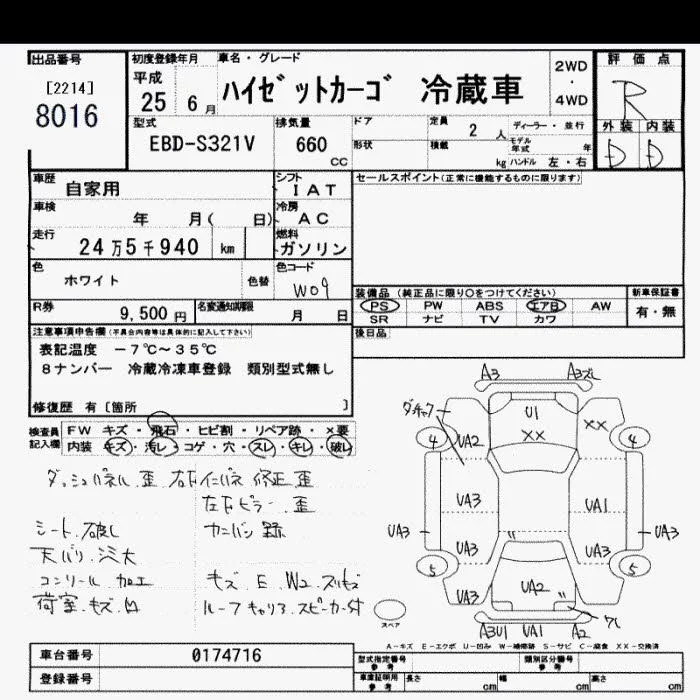 出品番号
[2214]
8016
初度登録年月
平成
25 6 月
車名・グレード
ハイゼットカーゴ 冷蔵車
2WD
・
4WD
評価点
R
外装 内装
D D
型式
EBD-S321V
排気量
660
CC
ドア
定員
2 人
ディーラー・並行
形状
積載
kg
モデル年式
年
ハンドル 左・右
車歴
自家用
シフト
IAT
セールスポイント(正常に機能するものに限ります)
車検
年 月( 日)
冷房
AC
走行
24万5千940 km
燃料
ガソリン
色
ホワイト
色替
色コード
W09
装備品(純正品に限り○をつけてください)
PS PW ABS エアB AW
SR ナビ TV カワ
新車保証書
有・無
R券
9,500 円
名変通知期限
月 日
後日品
注意事項申告欄(不具合内容等は具体的に記入して下さい)
表記温度 -7℃~35℃
8ナンバー 冷蔵冷凍車登録 類別型式無し
修復歴 有[箇所 ]
検査員記入欄
FW キズ・飛石・ヒビ割・リペア跡・×要
内装 キズ・汚レ・コゲ・穴・スレ・キレ・破レ
ダッシュパネル.歪 右Fインパネ 修正.歪
左Fピラー.歪
シート.破レ
天バリ.シミ大
コンソール.加工
荷室.キズ.凹
キズ.E.W2.スリキズ
ルーフキャリア.スピーカー付
A3 A3ズレ
ダチャク
U1
××
××
4 4
UA2
UA3 UA1
UA3 UA3
UA3 UA3
UA3
5 5
UA2
ワレ
A3U1 UA1 A2
スペア
A-キズ E-エクボ U-凹み W-補修跡 S-サビ C-腐食 XX-交換済
車台番号
0174716
登録番号
型式指定番号
参考
類別区分番号
参考
車庫証明用
参考
長さ cm
幅 cm
高さ cm